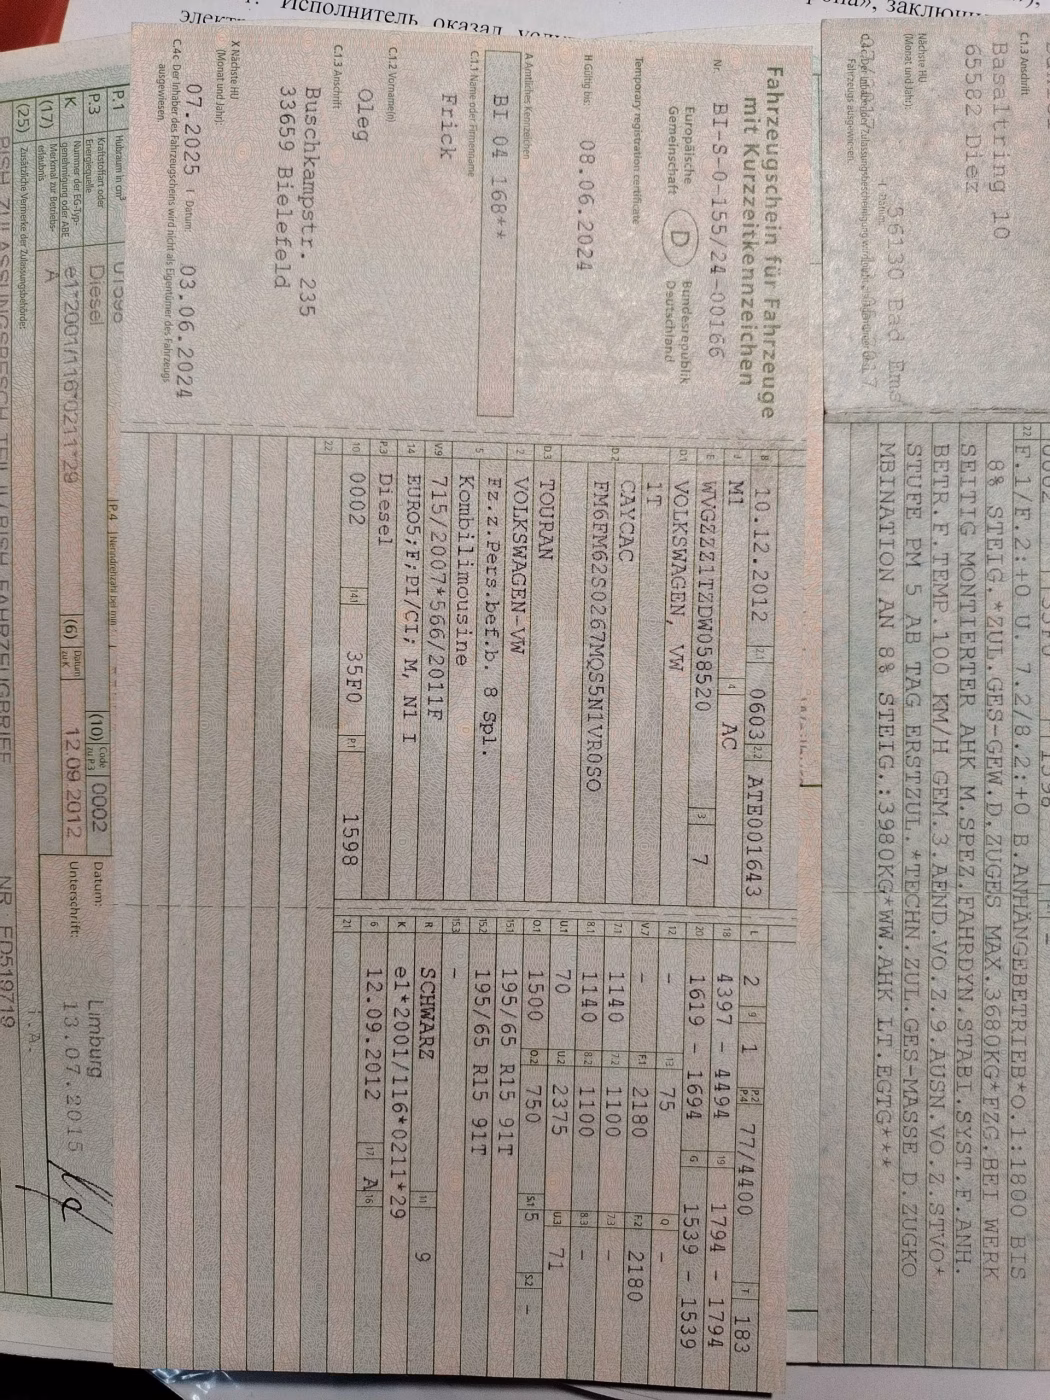 Исполнитель оказал
Basaltring 10
65582 Diez
56130 Bad Ems
Nächste HU
(Monat und Jahr):
22 F.1/F.2:+0 U. 7.2/8.2:+0 B.ANHÄNGEBETRIEB*O.1:1800 BIS
8% STEIG.*ZUL.GES-GEW.D.ZUGES MAX.3680KG*FZG.BEI WERK
SEITIG MONTIERTER AHK M.SPEZ.FAHRDYN.STABI.SYST.F.ANH.
BETR.F.TEMP.100 KM/H GEM.3.AEND.VO.Z.9.AUSN.VO.Z.STVO*
STUFE PM 5 AB TAG ERSTZUL.*TECHN.ZUL.GES-MASSE D.ZUGKO
MBINATION AN 8% STEIG.:3980KG*WW.AHK LT.EGTG***
Fahrzeugschein für Fahrzeuge
mit Kurzzeitkennzeichen
Nr. BI-S-0-155/24-00166
Europäische Gemeinschaft D Bundesrepublik Deutschland
Temporary registration certificate
H Gültig bis: 08.06.2024
A Amtliches Kennzeichen
BI 04 168**
C.1.1 Name oder Firmenname
Frick
C.1.2 Vorname(n)
Oleg
C.1.3 Anschrift
Buschkampstr. 235
33659 Bielefeld
X Nächste HU
(Monat und Jahr):
07.2025 Datum: 03.06.2024
C.4c Der Inhaber des Fahrzeugscheins wird nicht als Eigentümer des Fahrzeugs
ausgewiesen.
B 10.12.2012 2.1 0603 2.2 ATE001643
J M1 4 AC
E WVGZZZ1TZDW058520 3 7
D.1 VOLKSWAGEN, VW
1T
CAYCAC
D.2 FM6FM62S0267MQS5N1VR0SO
D.3 TOURAN
2 VOLKSWAGEN-VW
5 Fz.z.Pers.bef.b. 8 Spl.
Kombilimousine
V.9 715/2007*566/2011F
14 EURO5;F;PI/CI; M, N1 I
P.3 Diesel
10 0002 14.1 35F0 P.1 1598
22
L 2 9 1 P.2 P.4 77/4400 T 183
18 4397 - 4494 19 1794 - 1794
20 1619 - 1694 G 1539 - 1539
12 - 13 75 Q -
V.7 - F.1 2180 F.2 2180
7.1 1140 7.2 1100 7.3 -
8.1 1140 8.2 1100 8.3 -
U.1 70 U.2 2375 U.3 71
O.1 1500 O.2 750 S.1 5 S.2 -
15.1 195/65 R15 91T
15.2 195/65 R15 91T
15.3 -
R SCHWARZ 11 9
K e1*2001/116*0211*29
6 12.09.2012 17 A 16
21
P.1 Hubraum in cm³ 01598 P.4
P.3 Kraftstoffart oder Energiequelle Diesel (10) Code zu P.3 0002
K Nummer der EG-Typgenehmigung oder ABE e1*2001/116*0211*29 (6) Datum zu K 12.09.2012
(17) Merkmal zur Betriebserlaubnis A
(25) Zusätzliche Vermerke der Zulassungsbehörde:
BISH. ZULASSUNGSBESCH. TEIL II/BISH. FAHRZEUGBRIEF NR. ED519719
Datum: Limburg
13.07.2015
Unterschrift: i.A.